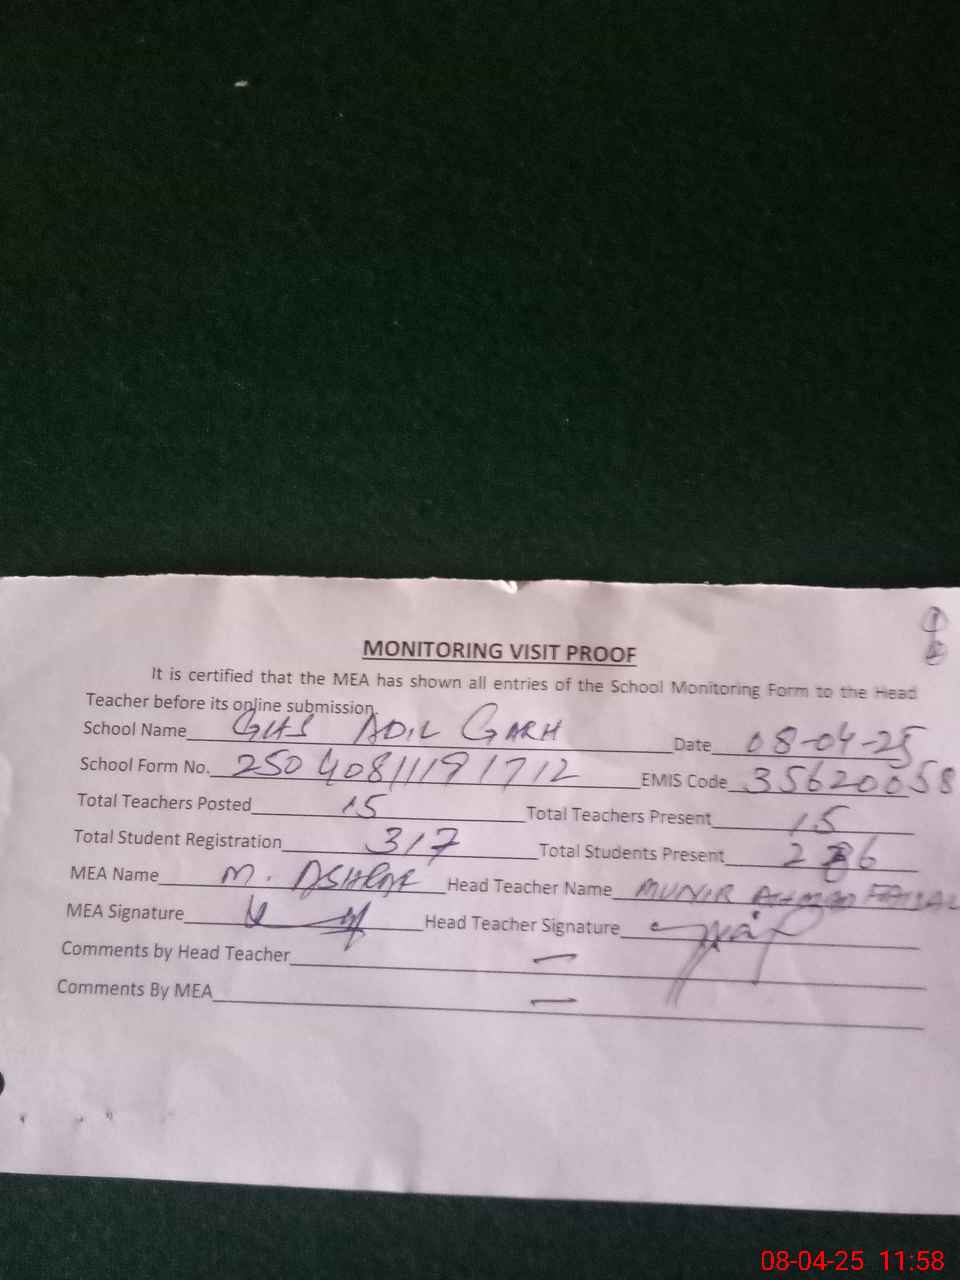 MONITORING VISIT PROOF
It is certified that the MEA has shown all entries of the School Monitoring Form to the Head
Teacher before its online submission.
School Name GHS ADIL GARH Date 08-04-25
School Form No. 25040811191712 EMIS Code 35620058
Total Teachers Posted 15 Total Teachers Present 15
Total Student Registration 317 Total Students Present
MEA Name M. ASHRAF Head Teacher Name MUNIR AHMAD FAISAL
MEA Signature Head Teacher Signature
Comments by Head Teacher —
Comments By MEA —
08-04-25 11:58